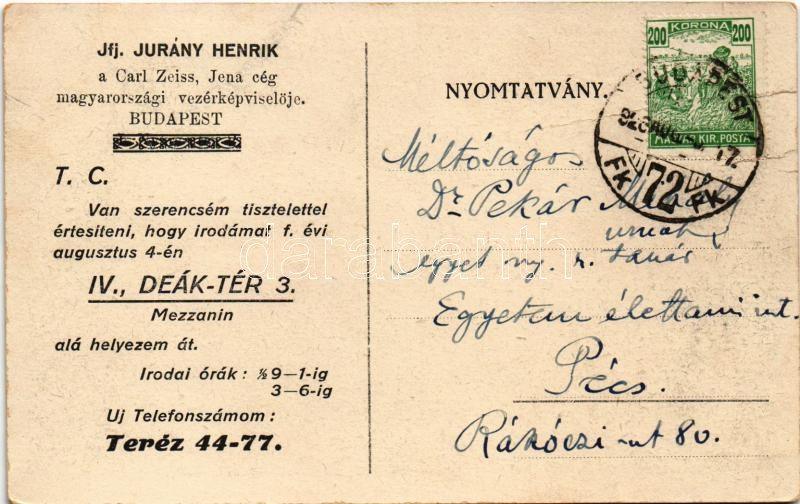 Jfj. JURÁNY HENRIK
a Carl Zeiss, Jena cég
magyarországi vezérképviselője.
BUDAPEST
T. C.
Van szerencsém tisztelettel
értesiteni, hogy irodámat f. évi
augusztus 4-én
IV., DEÁK-TÉR 3.
Mezzanin
alá helyezem át.
Irodai órák : ½ 9—1-ig
3—6-ig
Uj Telefonszámom :
Teréz 44-77.
NYOMTATVÁNY.
200 KORONA 200
MAGYAR KIR. POSTA
BUDAPEST
72
FK FK
Méltóságos
Dr Pekár
urnak
egyet ny. r. tanár
Egyetem élettani int.
Pécs.
Rákóczi-ut 80.
darabanth